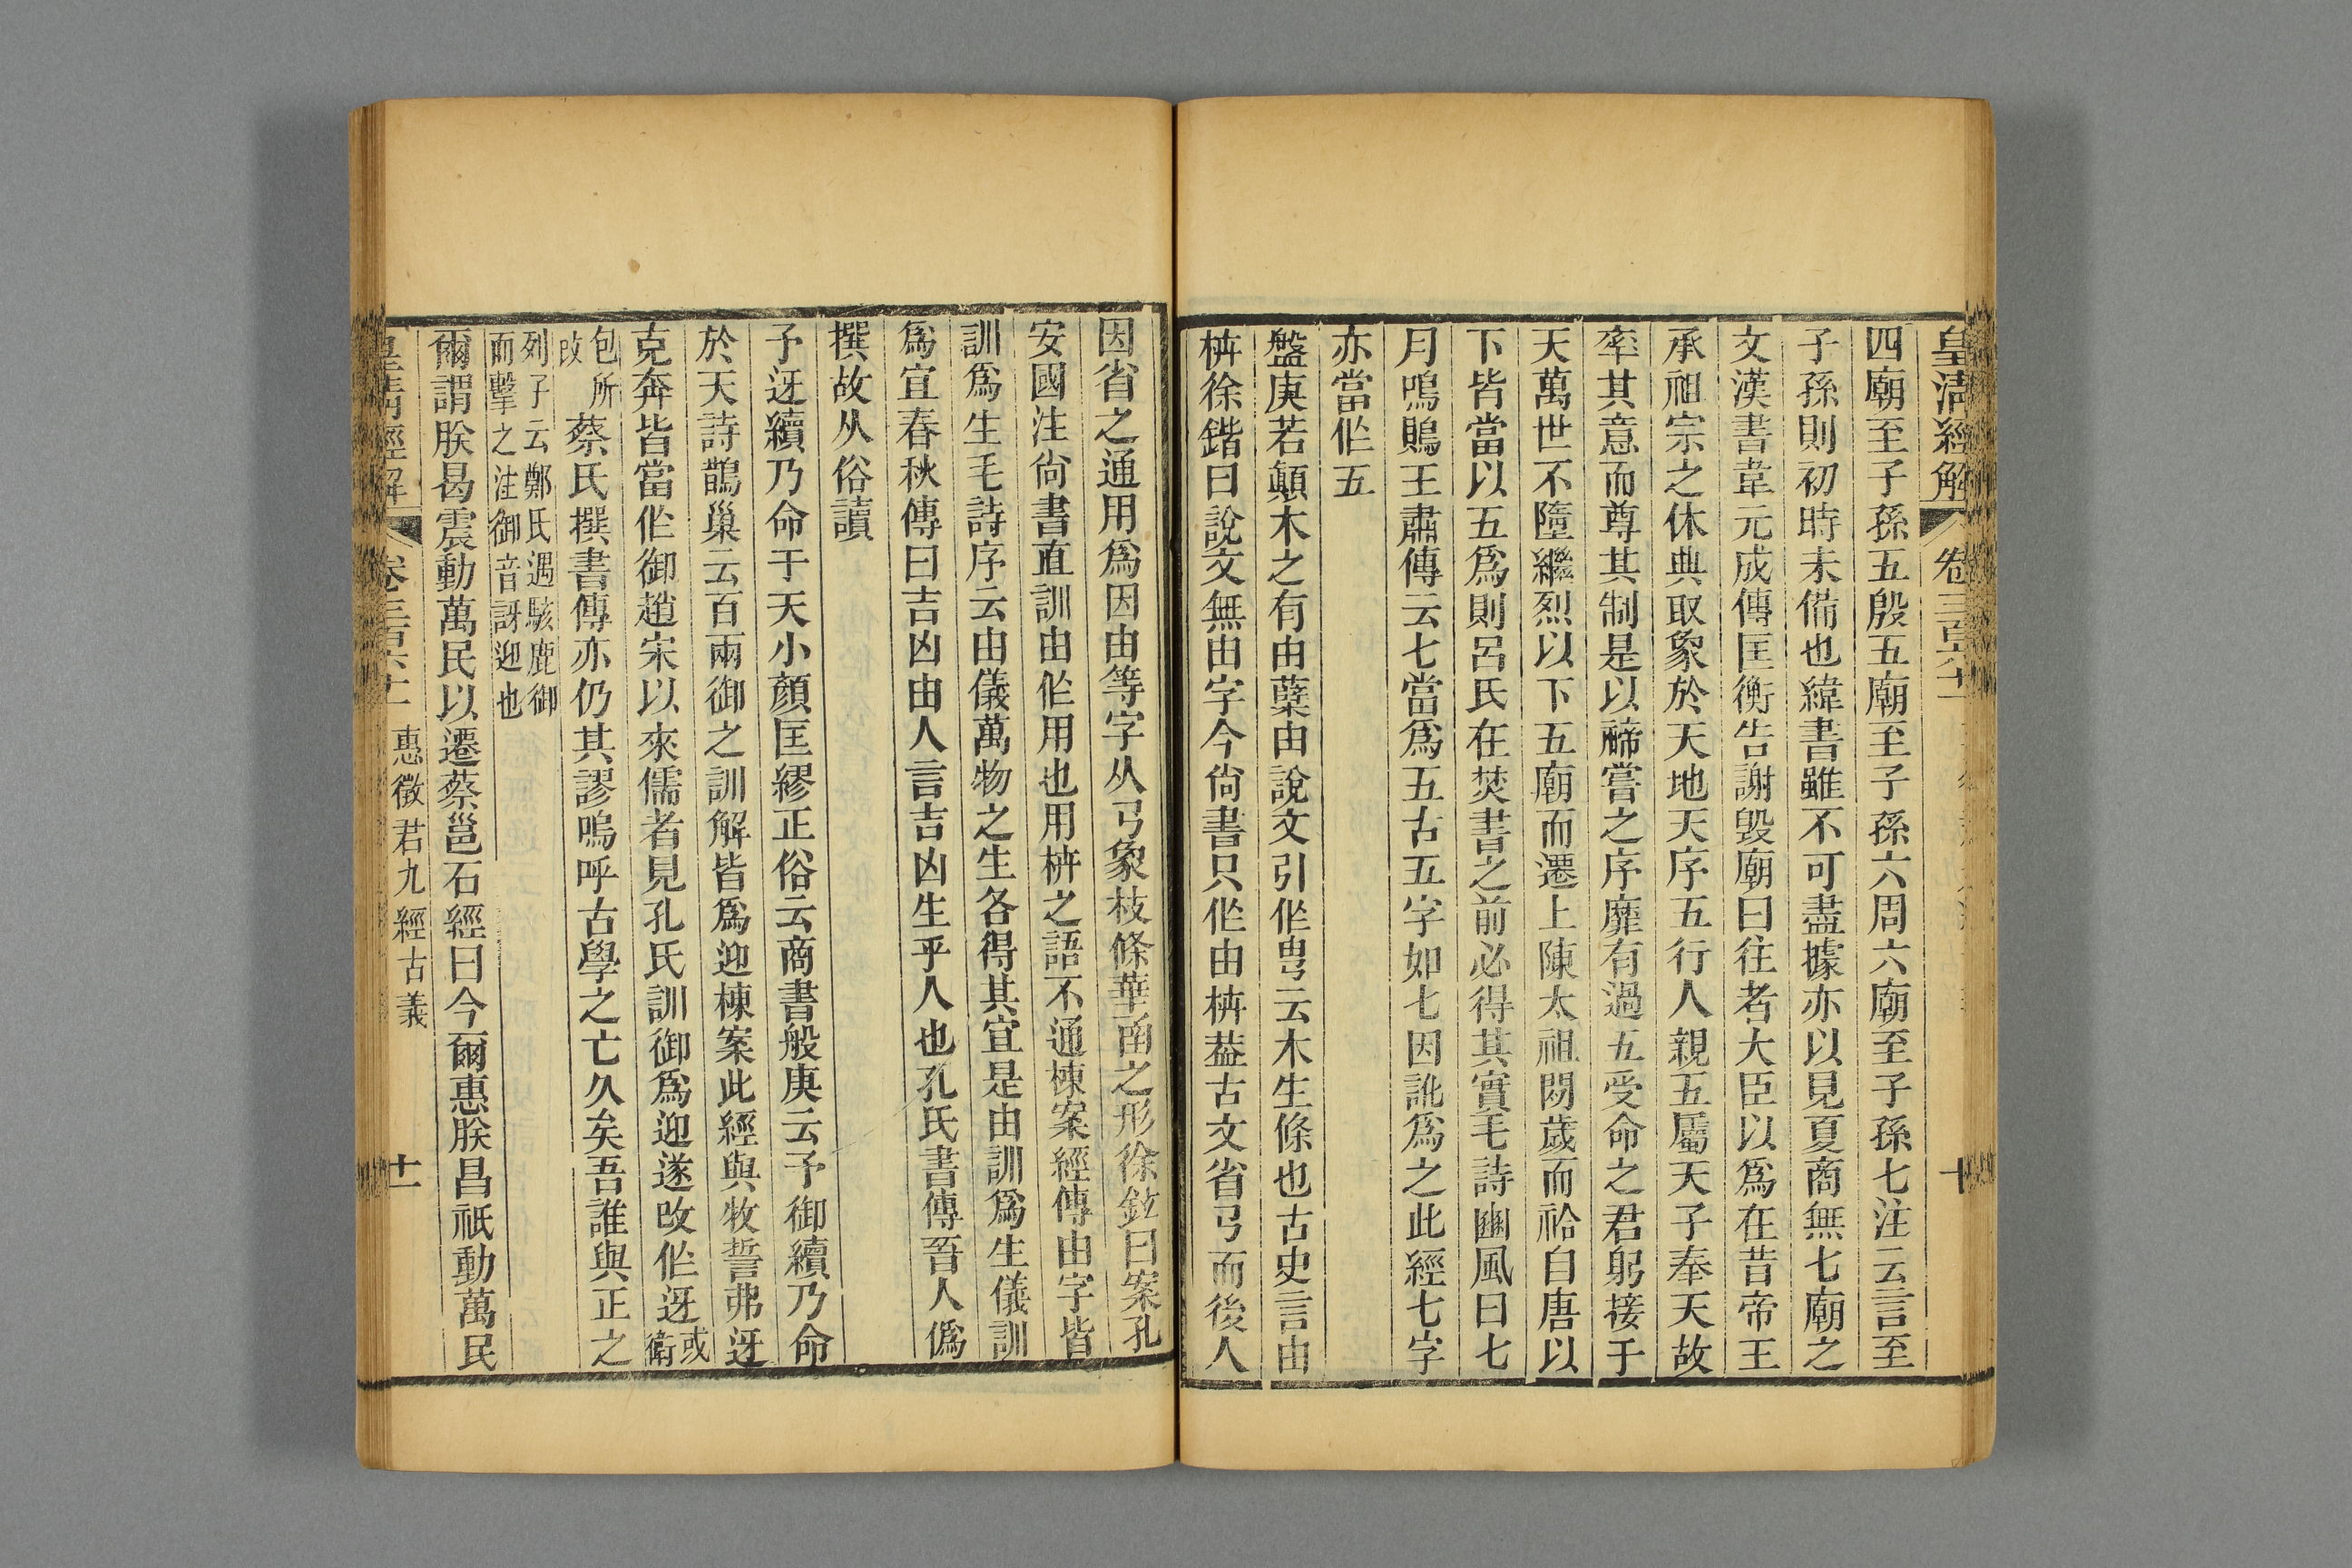 皇清經解 卷三百六十一 十
四廟至子孫五殷五廟至子孫六周六廟至子孫七注云言至
子孫則初時未備也緯書雖不可盡據亦以見夏商無七廟之
文漢書韋元成傳匡衡告謝毀廟曰往者大臣以爲在昔帝王
承祖宗之休典取象於天地天序五行人親五屬天子奉天故
率其意而尊其制是以禘嘗之序靡有過五受命之君躬接于
天萬世不墮繼烈以下五廟而遷上陳太祖閒歲而祫自唐以
下皆當以五爲則呂氏在焚書之前必得其實毛詩豳風曰七
月鳴鵙王肅傳云七當爲五古五字如七因訛爲之此經七字
亦當作五
盤庚若顛木之有由蘖由說文引作㽕云木生條也古史言由
枿徐鍇曰說文無由字今尙書只作由枿葢古文省𢎘而後人
因省之通用爲因由等字从𢎘象枝條華函之形徐鉉曰案孔
安國注尙書直訓由作用也用枿之語不通棟案經傳由字皆
訓爲生毛詩序云由儀萬物之生各得其宜是由訓爲生儀訓
爲宜春秋傳曰吉凶由人言吉凶生乎人也孔氏書傳晉人僞
撰故从俗讀
予迓續乃命于天小顏匡繆正俗云商書般庚云予御續乃命
於天詩鵲巢云百兩御之訓解皆爲迎棟案此經與牧誓弗迓
克奔皆當作御趙宋以來儒者見孔氏訓御爲迎遂改作迓或衛
包所改蔡氏撰書傳亦仍其謬嗚呼古學之亡久矣吾誰與正之
列子云鄭氏遇駭鹿御
而擊之注御音訝迎也
爾謂朕曷震動萬民以遷蔡邕石經曰今爾惠朕曷祇動萬民
皇清經解 卷三百六十一 惠徵君九經古義 十一